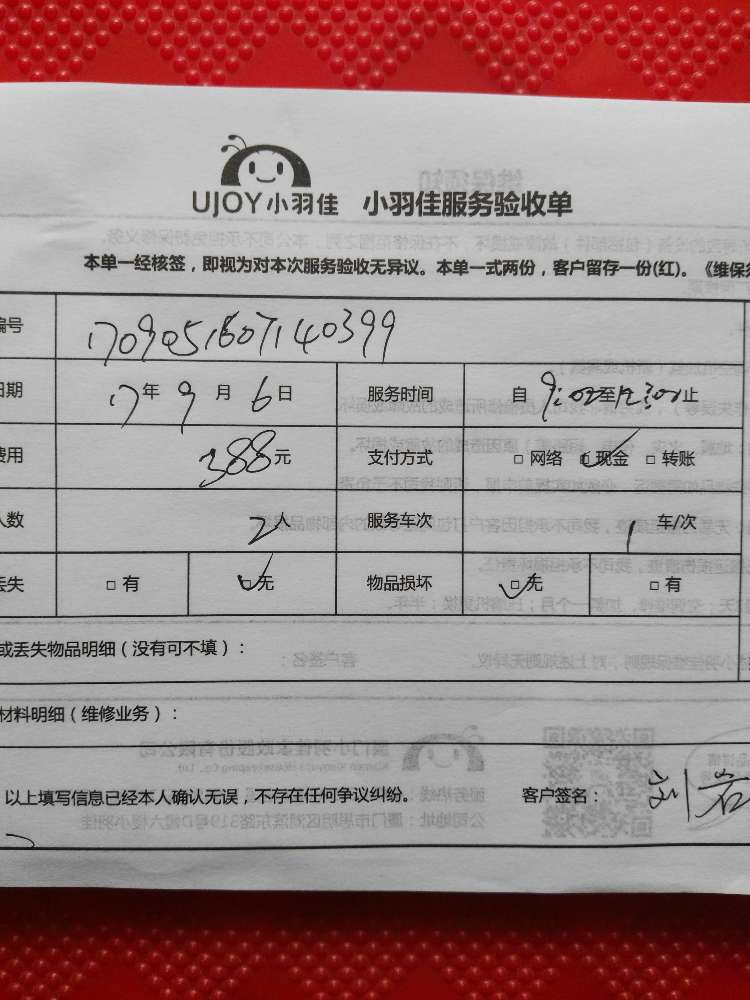 UJOY小羽佳 小羽佳服务验收单
本单一经核签，即视为对本次服务验收无异议。本单一式两份，客户留存一份(红)。《维保须
编号 1709051607140399
日期 17年9月6日 服务时间 自9:00至12:30止
费用 388元 支付方式 □网络 □现金 □转账
人数 2人 服务车次 1车/次
丢失 □有 □无 物品损坏 □无 □有
或丢失物品明细（没有可不填）：
材料明细（维修业务）：
以上填写信息已经本人确认无误，不存在任何争议纠纷。 客户签名：刘岩